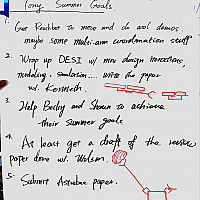 Tony Summer Goals
1. Get Reachbot to move and do cool demos,
maybe some multi-arm coordination stuff
2. Wrap up DESI w/ more design iterations,
modeling, simulation.... write the paper
w/ Kenneth.
3. Help Becky and Shawn to achieve
their summer goals
4. At least get a draft of the
paper done w. Wilson.
5. Submit Astrobee paper.